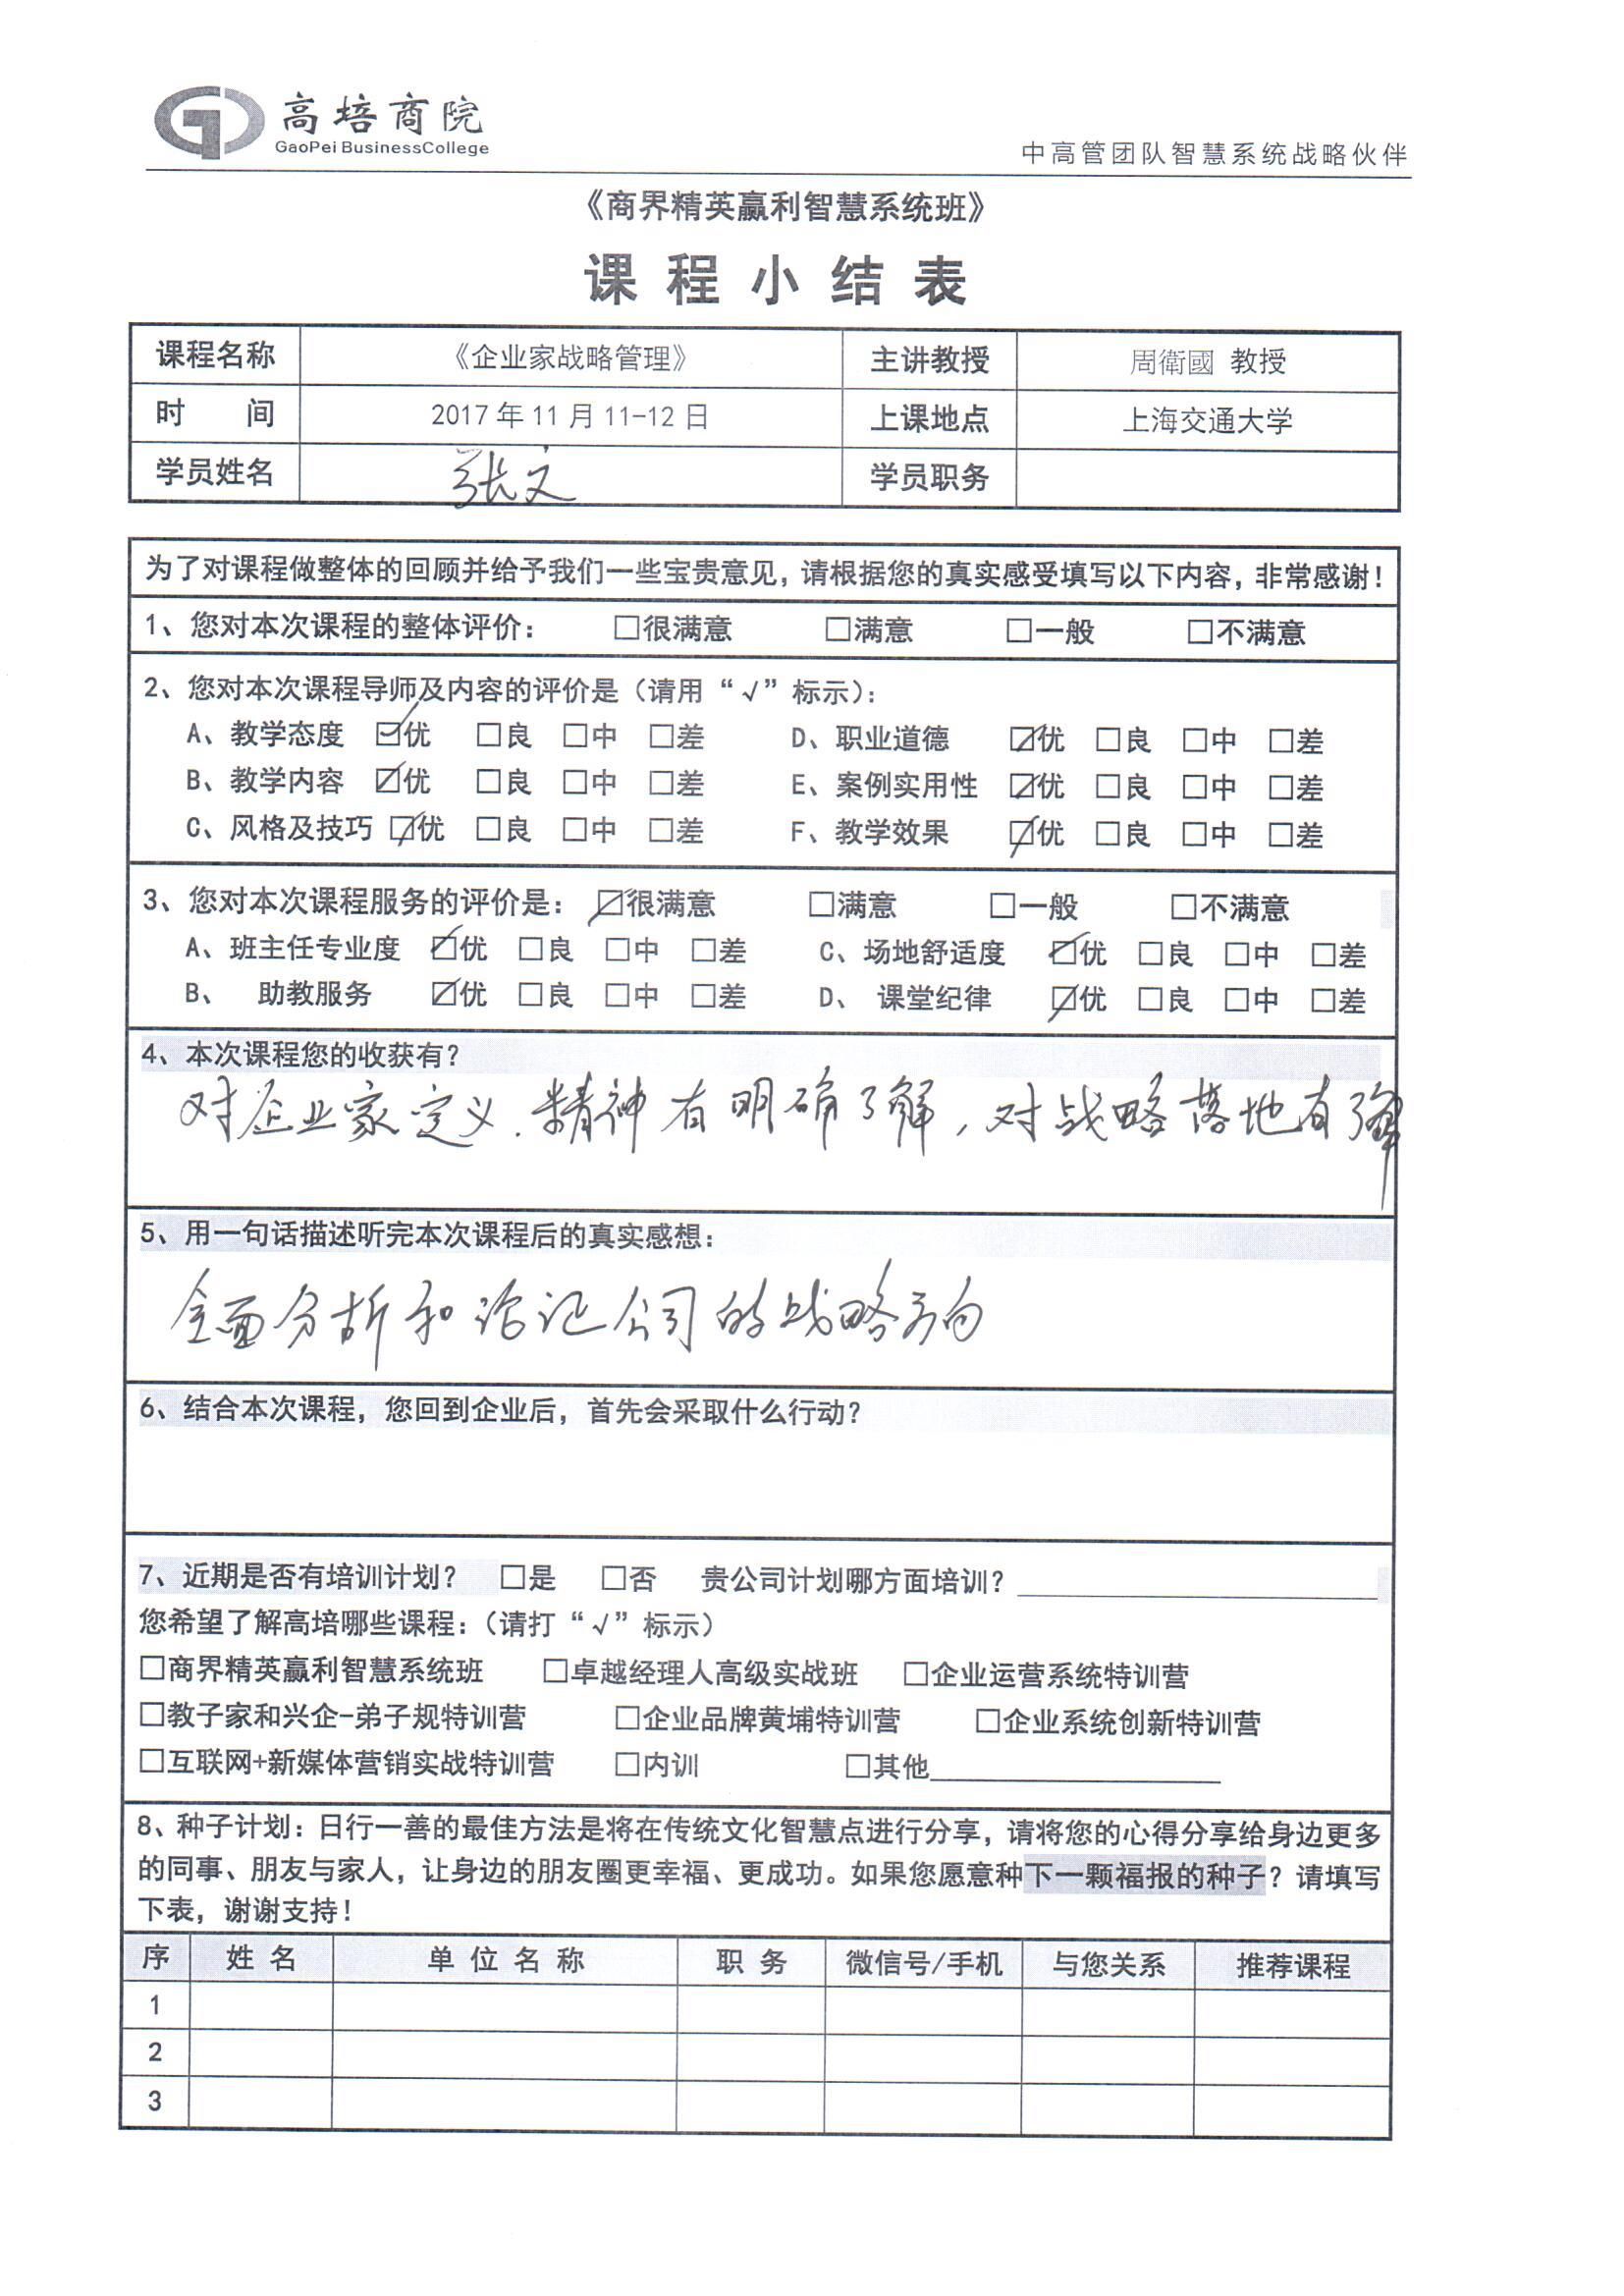 高培商院
GaoPei BusinessCollege
中高管团队智慧系统战略伙伴
《商界精英赢利智慧系统班》
课程小结表
课程名称 《企业家战略管理》 主讲教授 周衛國 教授
时 间 2017年11月11-12日 上课地点 上海交通大学
学员姓名 张文 学员职务
为了对课程做整体的回顾并给予我们一些宝贵意见，请根据您的真实感受填写以下内容，非常感谢！
1、您对本次课程的整体评价： □很满意 □满意 □一般 □不满意
2、您对本次课程导师及内容的评价是（请用“√”标示）：
A、教学态度 ☑优 □良 □中 □差 D、职业道德 ☑优 □良 □中 □差
B、教学内容 ☑优 □良 □中 □差 E、案例实用性 ☑优 □良 □中 □差
C、风格及技巧 ☑优 □良 □中 □差 F、教学效果 ☑优 □良 □中 □差
3、您对本次课程服务的评价是： ☑很满意 □满意 □一般 □不满意
A、班主任专业度 ☑优 □良 □中 □差 C、场地舒适度 ☑优 □良 □中 □差
B、 助教服务 ☑优 □良 □中 □差 D、 课堂纪律 ☑优 □良 □中 □差
4、本次课程您的收获有？
对企业家定义、精神有明确了解，对战略落地有了解
5、用一句话描述听完本次课程后的真实感想：
全面分析和论证公司的战略方向
6、结合本次课程，您回到企业后，首先会采取什么行动？
7、近期是否有培训计划？ □是 □否 贵公司计划哪方面培训？
您希望了解高培哪些课程：（请打“√”标示）
□商界精英赢利智慧系统班 □卓越经理人高级实战班 □企业运营系统特训营
□教子家和兴企-弟子规特训营 □企业品牌黄埔特训营 □企业系统创新特训营
□互联网+新媒体营销实战特训营 □内训 □其他
8、种子计划：日行一善的最佳方法是将在传统文化智慧点进行分享，请将您的心得分享给身边更多
的同事、朋友与家人，让身边的朋友圈更幸福、更成功。如果您愿意种下一颗福报的种子？请填写
下表，谢谢支持！
序 姓 名 单 位 名 称 职 务 微信号/手机 与您关系 推荐课程
1
2
3